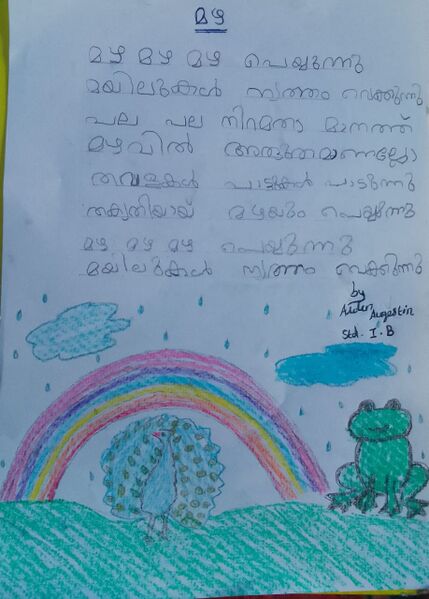 മഴ
മഴ മഴ മഴ പെയ്യുന്നു
മയിലുകൾ നൃത്തം വെക്കുന്നു
പല പല നിറമതാ മാനത്ത്
മഴവിൽ അത്ഭുതമാണല്ലോ
തവളകൾ പാട്ടുകൾ പാടുന്നു
തകൃതിയായ് മഴയും പെയ്യുന്നു
മഴ മഴ മഴ പെയ്യുന്നു
മയിലുകൾ നൃത്തം വെക്കുന്നു
by
Augestin
Std. I.B